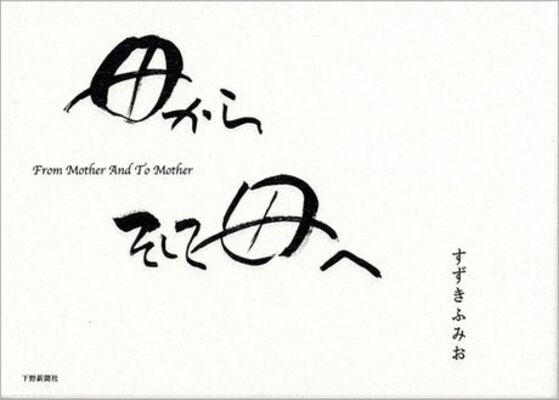 母から
From Mother And To Mother
そして母へ
すずきふみお
下野新聞社